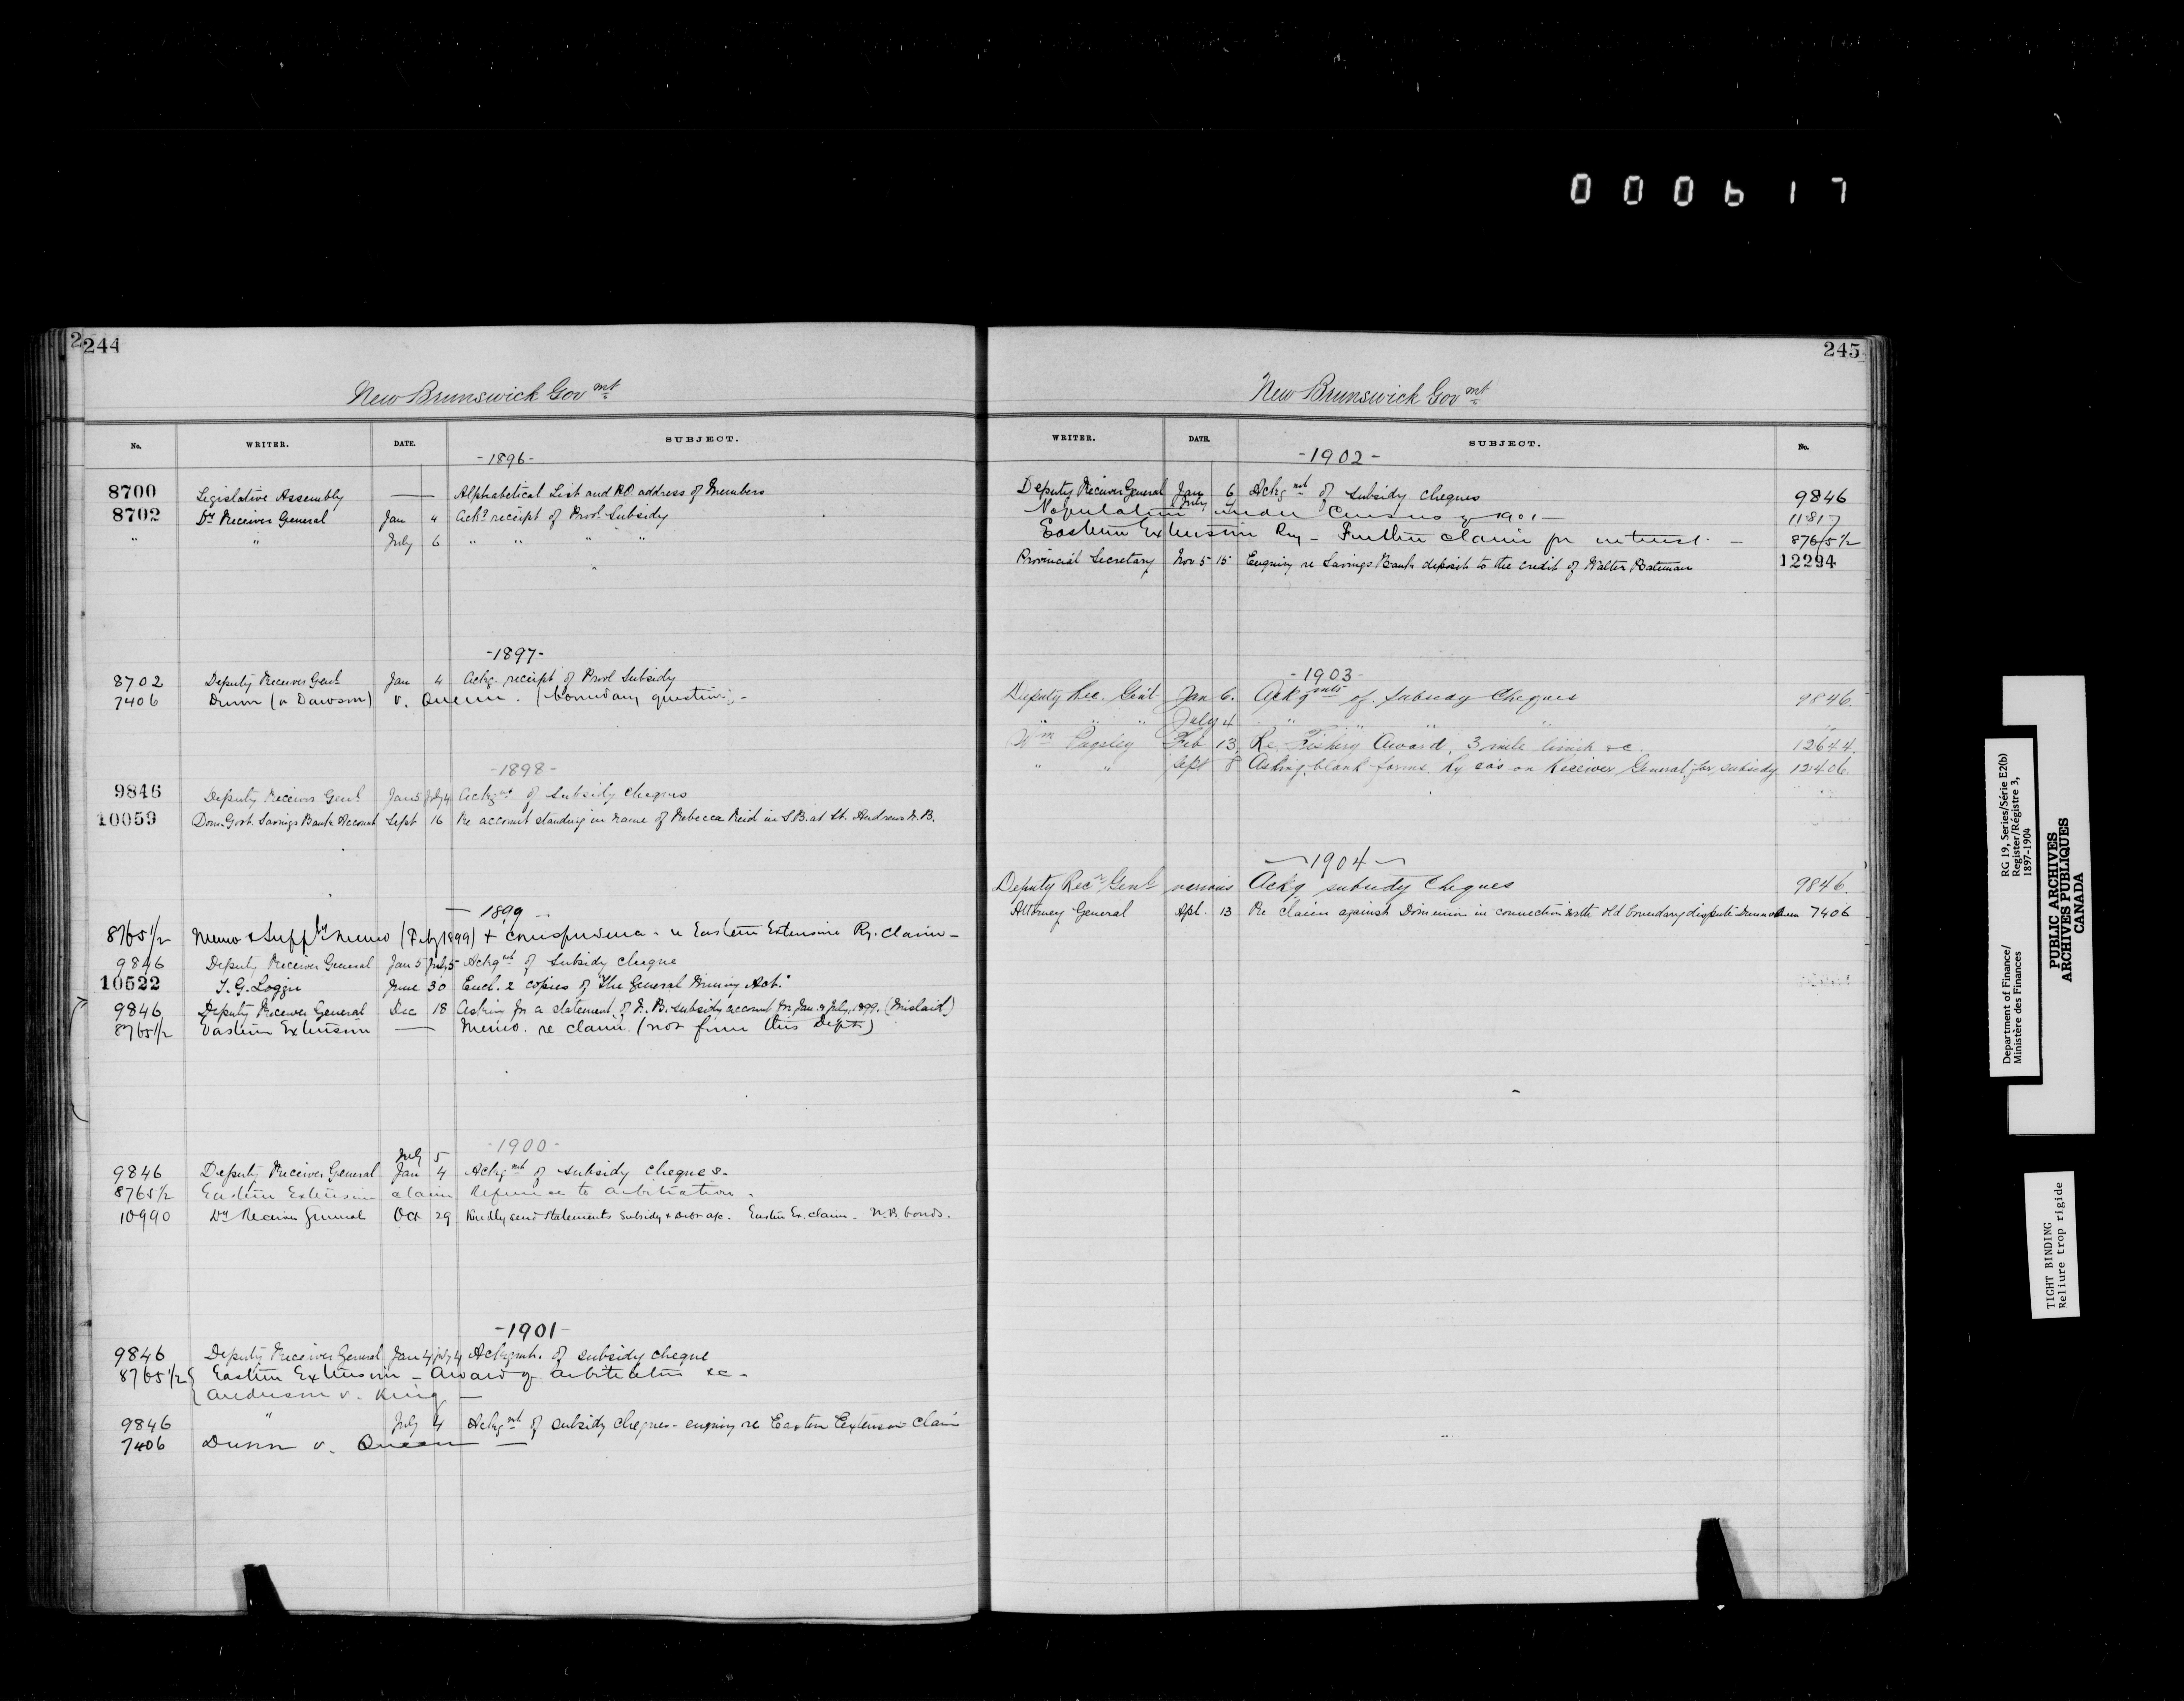 000617
244
New Brunswick Govmt
No. WRITER. DATE. SUBJECT.
-1896-
8700 Legislative Assembly — Alphabetical List and P.O. address of Members
8702 Dy Receiver General Jan 4 Ackg receipt of Provl Subsidy
" " July 6 " " " "
-1897-
8702 Deputy Receiver Genl Jan 4 Ackg. receipt of Provl Subsidy
7406 Dunn (or Dawson) v. Queen. (boundary question) -
-1898-
9846 Deputy Receiver Genl Jan 5 July 4 Ackgmt of Subsidy Cheques
10059 Dom. Govt. Savings Bank Account Sept 16 Re account standing in name of Rebecca Reid in S.B. at St. Andrews N.B.
- 1899 -
8765 1/2 Memo & Supply memo (Feby 1899) + correspondence - re Eastern Extension Ry. Claim -
9846 Deputy Receiver General Jan 5 July 5 Ackgmt of Subsidy Cheque
10522 T. G. Loggie June 30 Encl. 2 copies of "The General Mining Act."
9846 Deputy Receiver General Dec 18 Asking for a statement of N.B. subsidy account for Jan. & July, 1899. (Mislaid)
8765 1/2 Eastern Extension — Memo. re claim. (not from this Dept)
-1900-
July 5
9846 Deputy Receiver General Jan 4 Ackgmt of Subsidy Cheques.
8765 1/2 Eastern Extension claim Reference to arbitration.
10990 Dy Receiver General Oct 29 Kindly send statements Subsidy & Debt a/c. Eastern Ex. claim. N.B. bonds.
-1901-
9846 Deputy Receiver General Jan 4 July 4 Ackgmt. of subsidy cheque
8765 1/2 Eastern Extension - Award of arbitrators &c -
Anderson v. King —
9846 " July 4 Ackgmt of subsidy cheques - enquiry re Eastern Extension Claim
7406 Dunn v. Queen —
245
New Brunswick Govmt
WRITER. DATE. SUBJECT. No.
-1902-
Deputy Receiver General Jan July 6 Ackgmt of Subsidy cheques 9846
Population under Census of 1901 — 11817
Eastern Extension Ry - Further claim for interest - 8765 1/2
Provincial Secretary Nov 5 15 Enquiry re Savings Bank deposit to the credit of Walter Bateman 12294
-1903-
Deputy Rec. Gen'l Jan 6. Ackgmts of Subsidy Cheques 9846.
" " " July 4 " " " "
Wm Pugsley Feb 13. Re. Fishery Award, 3 mile limit &c. 12644.
" " Sept 8 Asking blank forms, Ry co's on Receiver General, for subsidy 12406.
-1904-
Deputy Recr. Genl various Ackg subsidy Cheques 9846.
Attorney General Apl. 13 Re claim against Dominion in connection with old boundary dispute Dunn v Queen 7406
Department of Finance/
Ministère des Finances
RG 19, Series/Série E2(b)
Register/Régistre 3,
1897-1904
PUBLIC ARCHIVES
ARCHIVES PUBLIQUES
CANADA
TIGHT BINDING
Reliure trop rigide